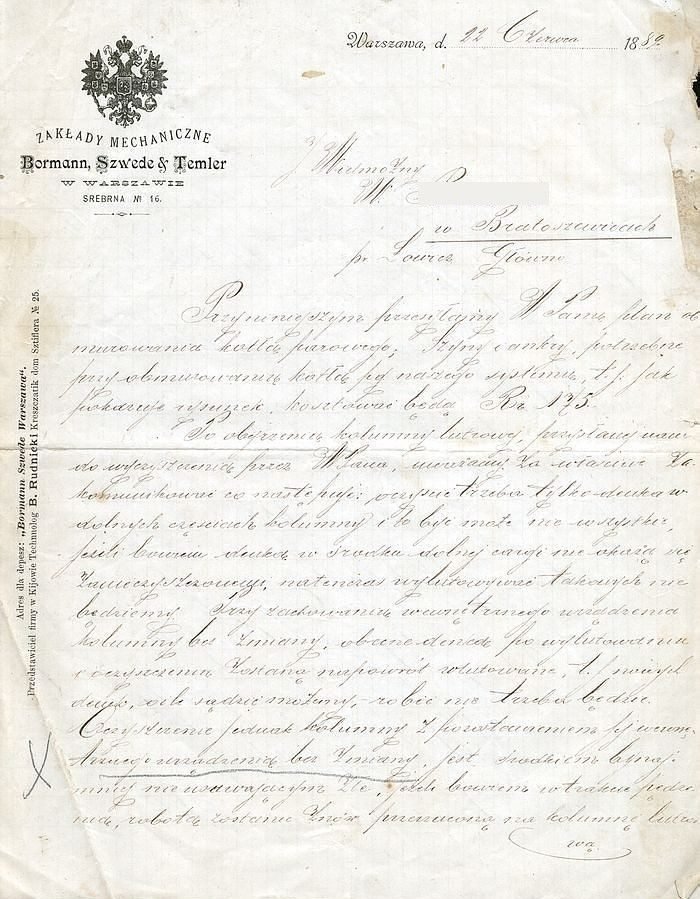 Warszawa, d. 22 Czerwca 1889
ZAKŁADY MECHANICZNE
Bormann, Szwede & Temler
W WARSZAWIE
SREBRNA № 16.
Wielmożny
W. P
w Bratoszewicach
pr Łowicz Główno
Przyniniejszym przesyłamy W Panu plan ob
murowania kotła parowego; Szyny i ankry, potrzebne
przy obmurowaniu kotła pg naszego systemu, t. j. jak
pokazuje rysunek, kosztować będą Rs. 175.
Po obejrzeniu kolumny lutrowej, przysłanej nam
do wyczyszczenia przez W Pana, uważamy za właściwe Za
komunikować co następuje: oczyścić trzeba tylko denka w
dolnych częściach kolumny i to być może nie wszystkie,
jeżeli bowiem denka w środku dolnej cargi nie okażą się
zanieczyszczonemi, natenczas wylutowywać takowych nie
będziemy. Przy zachowaniu wewnętrznego urządzenia
kolumny bez zmiany, obecne denka po wylutowaniu
i oczyszczeniu zostaną napowrót wlutowane, t. j. nowych
denek, o ile sądzić możemy, robić nie trzeba będzie.
Oczyszczenie jednak kolumny z pozostawieniem jej wewnę-
trznego urządzenia bez zmiany, jest środkiem bynaj-
mniej nie usuwającym złe, jeżeli bowiem w trakcie pędze-
nia, robota zostanie znów przerzucona na kolumnę lutro-
wą
Adres dla depesz: „Bormann Szwede Warszawa".
Przedstawiciel firmy w Kijowie Technolog B. Rudnicki Kreszczatik dom Sztiflera № 25.